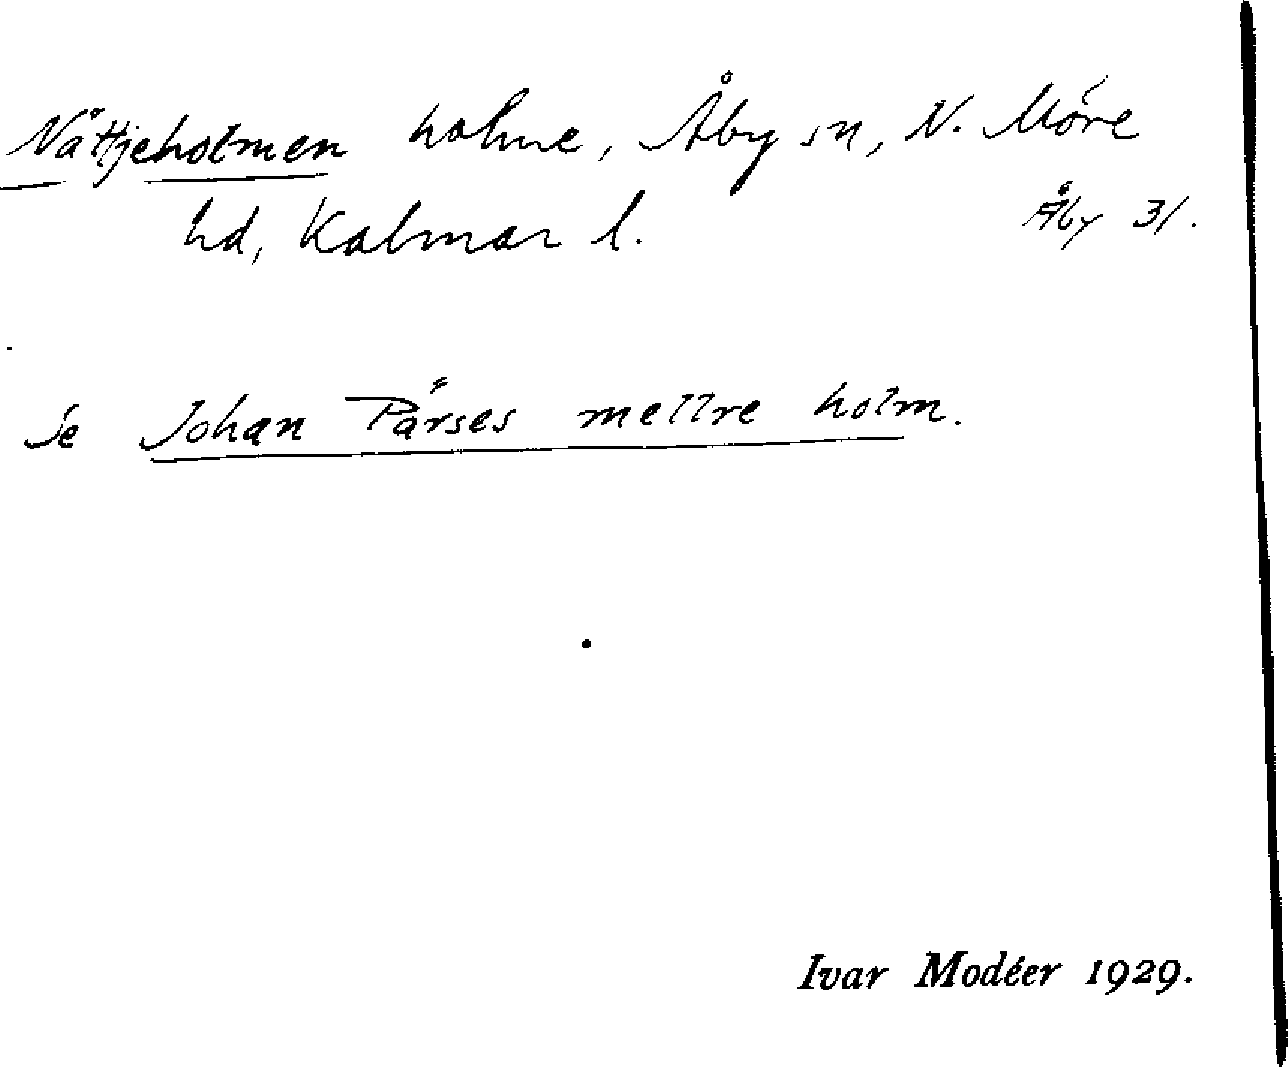 Nättjeholmen holme, Åby sn, N. Möre
hd, Kalmar l. Åby 31.
Se Johan Pärses mellre holm.
Ivar Modéer 1929.